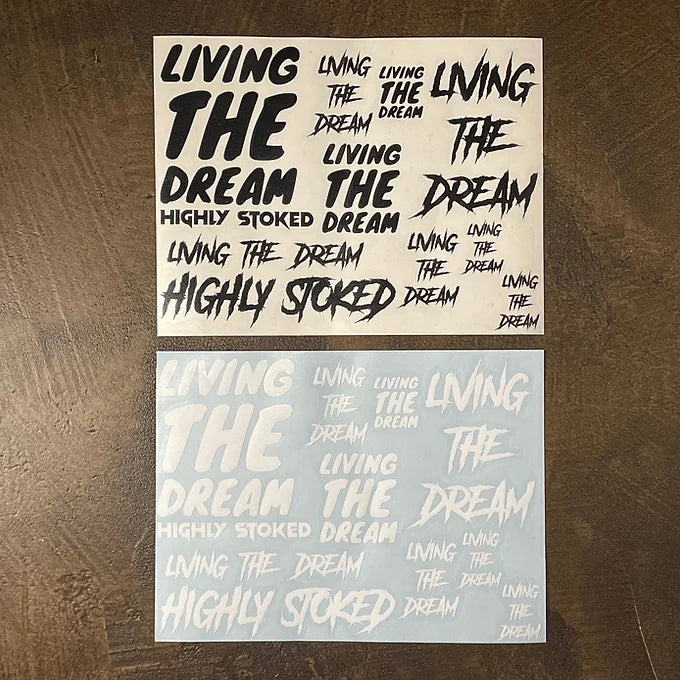 LIVING
THE
DREAM
HIGHLY STOKED
LIVING
THE
DREAM
LIVING
THE
DREAM
LIVING
THE
DREAM
LIVING
THE
DREAM
LIVING THE DREAM
HIGHLY STOKED
LIVING
THE
DREAM
LIVING
THE
DREAM
LIVING
THE
DREAM
LIVING
THE
DREAM
HIGHLY STOKED
LIVING
THE
DREAM
LIVING
THE
DREAM
LIVING
THE
DREAM
LIVING
THE
DREAM
LIVING THE DREAM
HIGHLY STOKED
LIVING
THE
DREAM
LIVING
THE
DREAM
LIVING
THE
DREAM